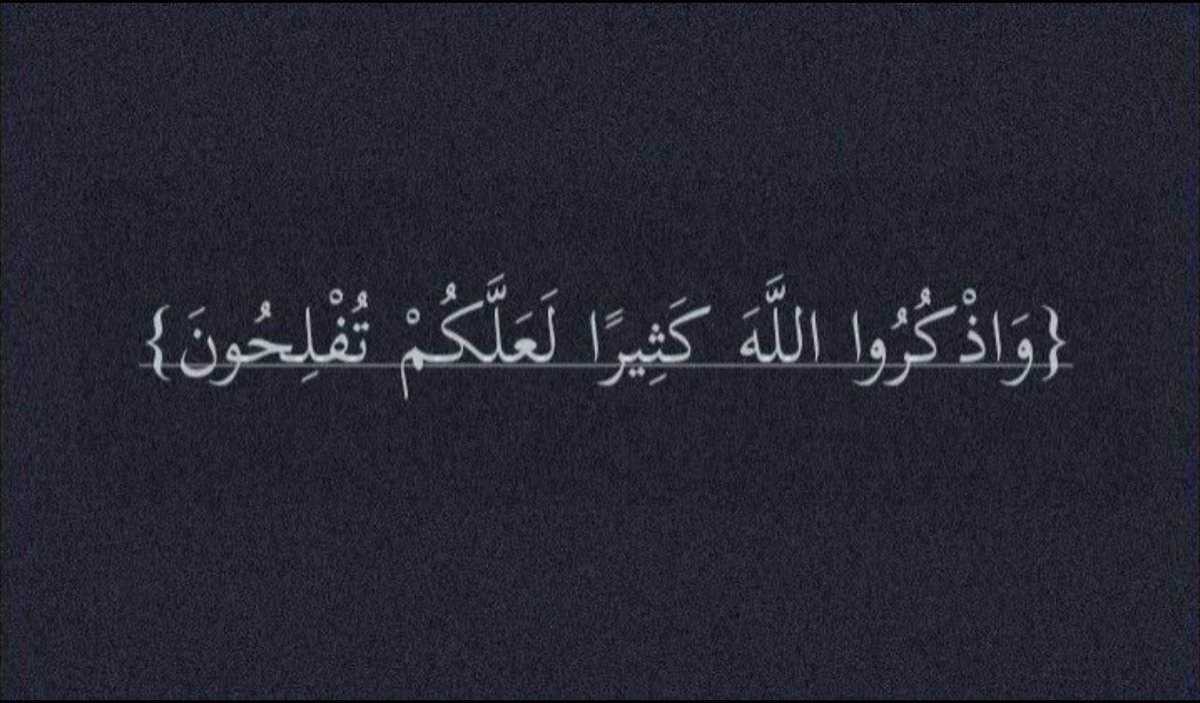 {وَاذْكُرُوا اللَّهَ كَثِيرًا لَعَلَّكُمْ تُفْلِحُونَ}